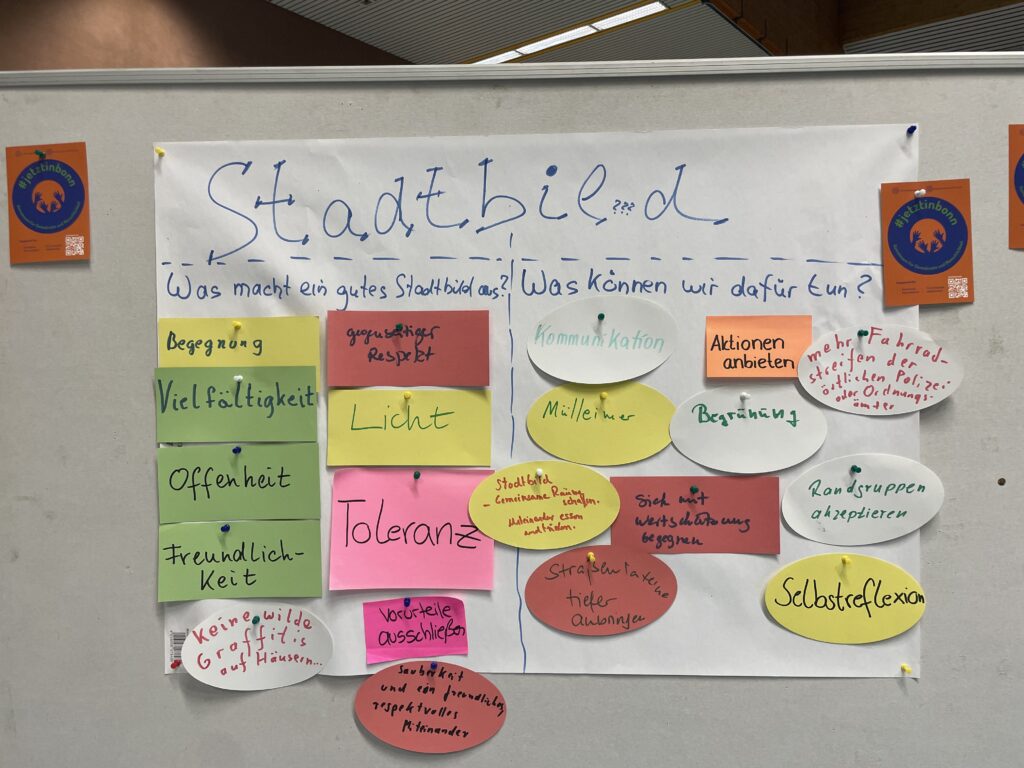 Stadtbil...???...d
Was macht ein gutes Stadtbild aus?
Begegnung
Vielfältigkeit
Offenheit
Freundlich-
keit
Keine wilde
Graffitis
auf Häusern...
gegenseitiger
Respekt
Licht
Toleranz
Vorurteile
ausschließen
Sauberkeit
und ein freundliches
respektvolles
Miteinander
Was können wir dafür tun?
Kommunikation
Aktionen
anbieten
mehr Fahrrad-
streifen der
örtlichen Polizei
oder Ordnungs-
ämter
Mülleimer
Begrünung
Stadtbild
- Gemeinsame Räume
schaffen.
Miteinander essen
und trinken.
Sich mit
Wertschätzung
begegnen
Randgruppen
akzeptieren
Straßenlaterne
tiefer
anbringen
Selbstreflexion
#jetztinbonn
#jetztinbonn